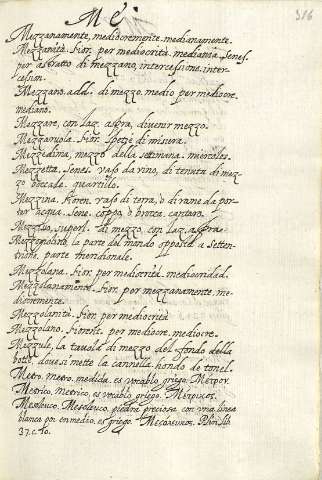 Me
316
Mezzanamente, mediocremente. medianamente.
Mezzanità. Fior. per mediocrità. mediania. Senes.
per astratto di mezzano, intercessione. inter-
cession.
Mezzano. add. di mezzo. medio per mediocre.
mediano.
Mezzare, con la z. aspra, divenir mezzo.
Mezzaruola. Fior. spetie di misura.
Mezzedima, mezzo della settimana. miercoles.
Mezzetta. Senes. vaso da vino, di tenuta di mez-
zo boccale. quartillo.
Mezzina. Fioren. vaso di terra, o di rame da por-
tar acqua. Sene. coppo, o brocca. cantaro.
superl. di mezzo, con la z. aspra
Mezzogiorno, la parte del mondo opposta à Setten-
trione. parte meridionale.
Mezzolana. Fior. per mediocrità. mediocridad.
Mezzolanamente. Fior. per mezzanamente. me-
diocremente.
Mezzolanità. Fior. per mediocrità
Mezzolano. Fiorent. per mediocre. mediocre.
Mezzule, la tavola di mezzo del fondo della
botte dove si mette la cannella. hondo de tonel.
Metro. metro. medida. es vocablo griego. Μετρον.
Metrico, metrico, es vocablo griego. Μετρικος.
Mesoleuco. Mesoleuco. piedra preciosa con una linea
blanca por en medio. es griego. Μεσολευκος. Plin. lib.
37. c. 10.